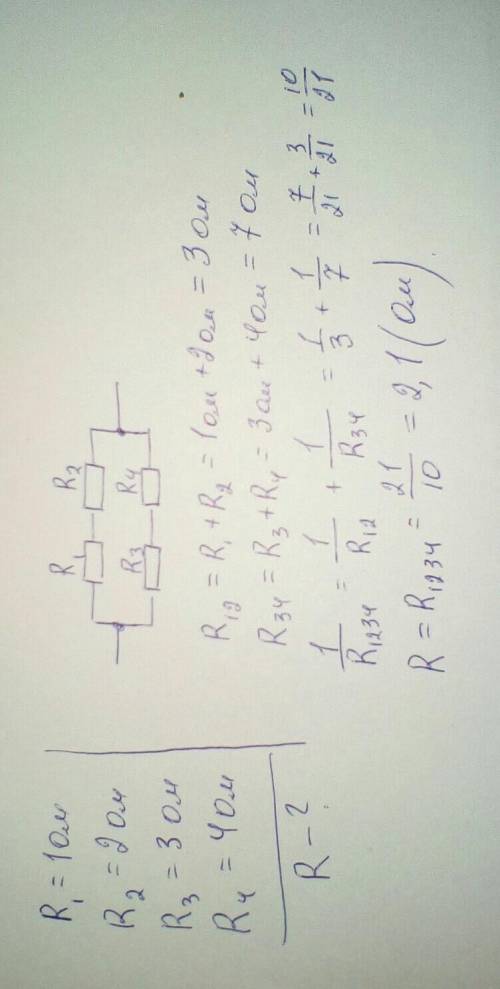 R₁ = 1 Ом
R₂ = 2 Ом
R₃ = 3 Ом
R₄ = 4 Ом
R – ?
R₁ R₂
R₃ R₄
R₁₂ = R₁ + R₂ = 1 Ом + 2 Ом = 3 Ом
R₃₄ = R₃ + R₄ = 3 Ом + 4 Ом = 7 Ом
1/R₁₂₃₄ = 1/R₁₂ + 1/R₃₄ = 1/3 + 1/7 = 7/21 + 3/21 = 10/21
R = R₁₂₃₄ = 21/10 = 2,1 (Ом).